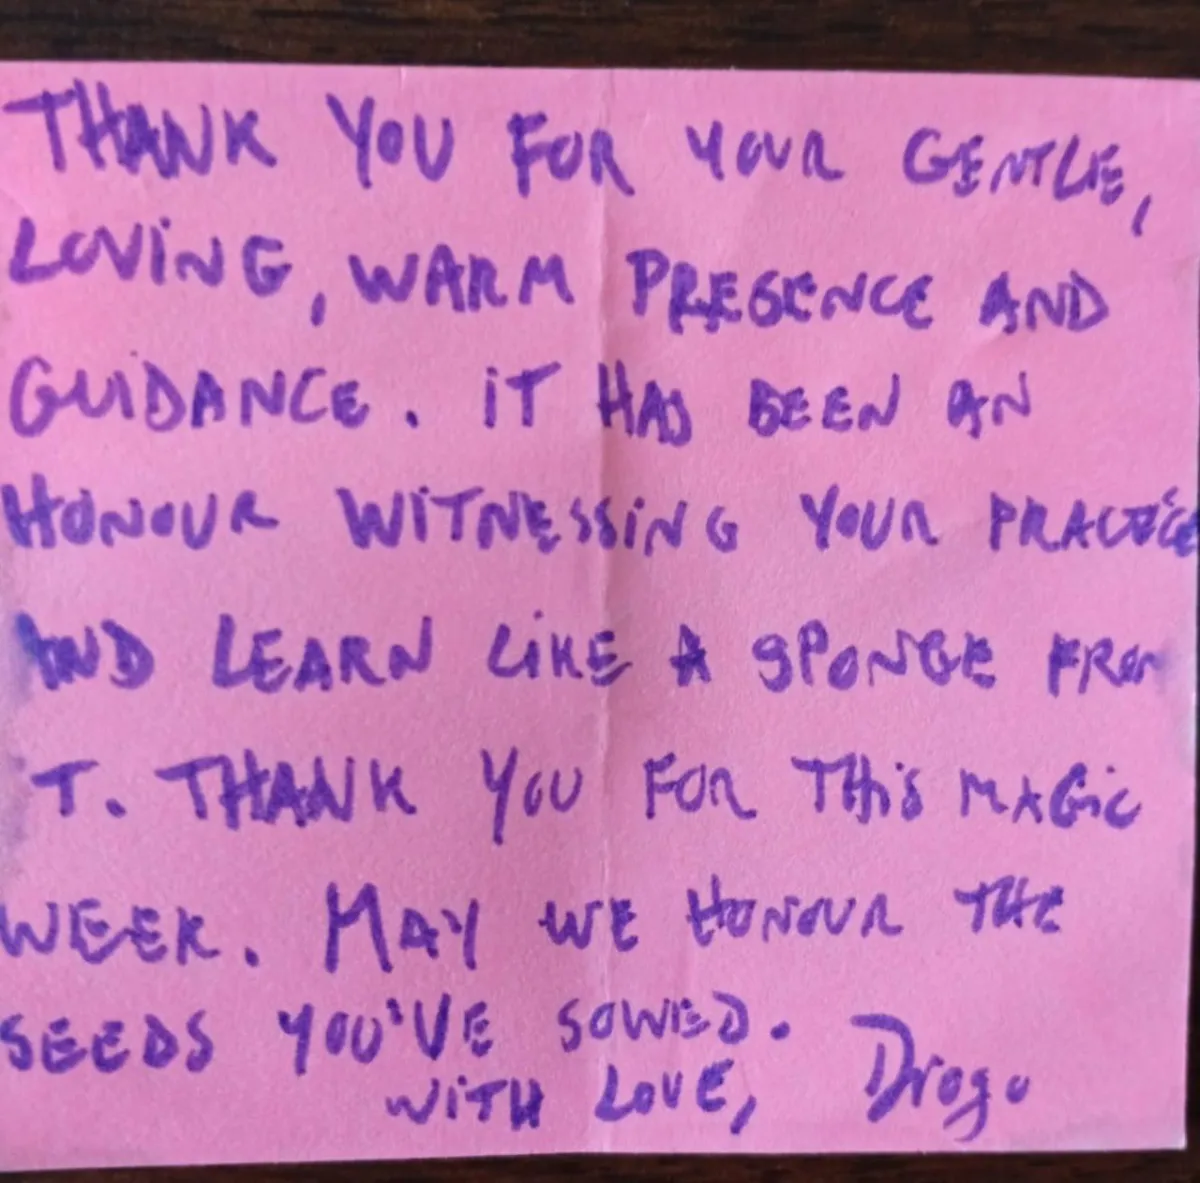 THANK YOU FOR YOUR GENTLE,
LOVING, WARM PRESENCE AND
GUIDANCE. IT HAS BEEN AN
HONOUR WITNESSING YOUR PRACTICE
AND LEARN LIKE A SPONGE FROM
T. THANK YOU FOR THIS MAGIC
WEEK. MAY WE HONOUR THE
SEEDS YOU'VE SOWED.
WITH LOVE, Diogo